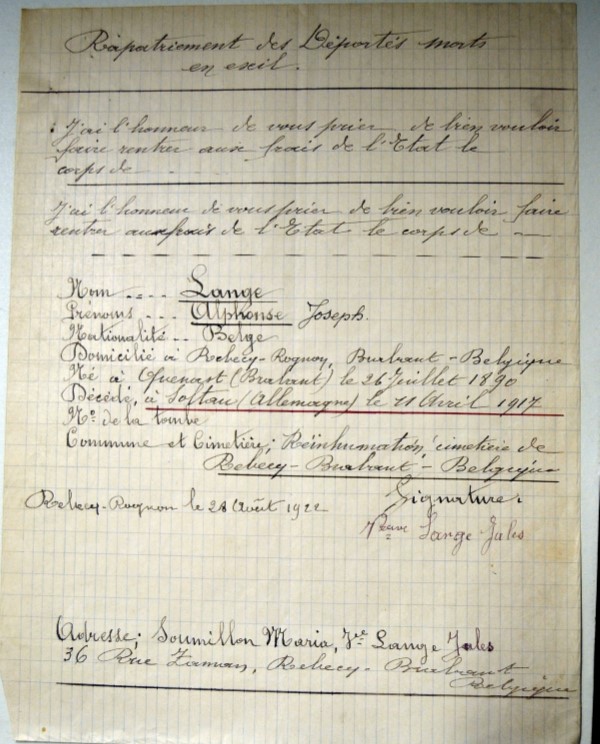 Rapatriement des Déportés morts
en exil.
J'ai l'honneur de vous prier de bien vouloir
faire rentrer aux frais de l'Etat le
corps de
J'ai l'honneur de vous prier de bien vouloir faire
rentrer aux frais de l'Etat le corps de
Nom .... Lange
Prénoms ... Alphonse Joseph.
Nationalité .. Belge
Domicilié à Rebecq-Rognon, Brabant - Belgique
Né à Quenast (Brabant) le 26 Juillet 1890
Décédé, à Soltau (Allemagne) le 11 Avril 1917
No de la tombe
Commune et Cimetière; Réinhumation, cimetière de
Rebecq - Brabant - Belgique
Rebecq-Rognon le 28 Août 1922
Signature.
Veuve Lange Jules
Adresse; Soumillon Maria, Vve Lange Jules
36 Rue Zaman, Rebecq - Brabant
Belgique